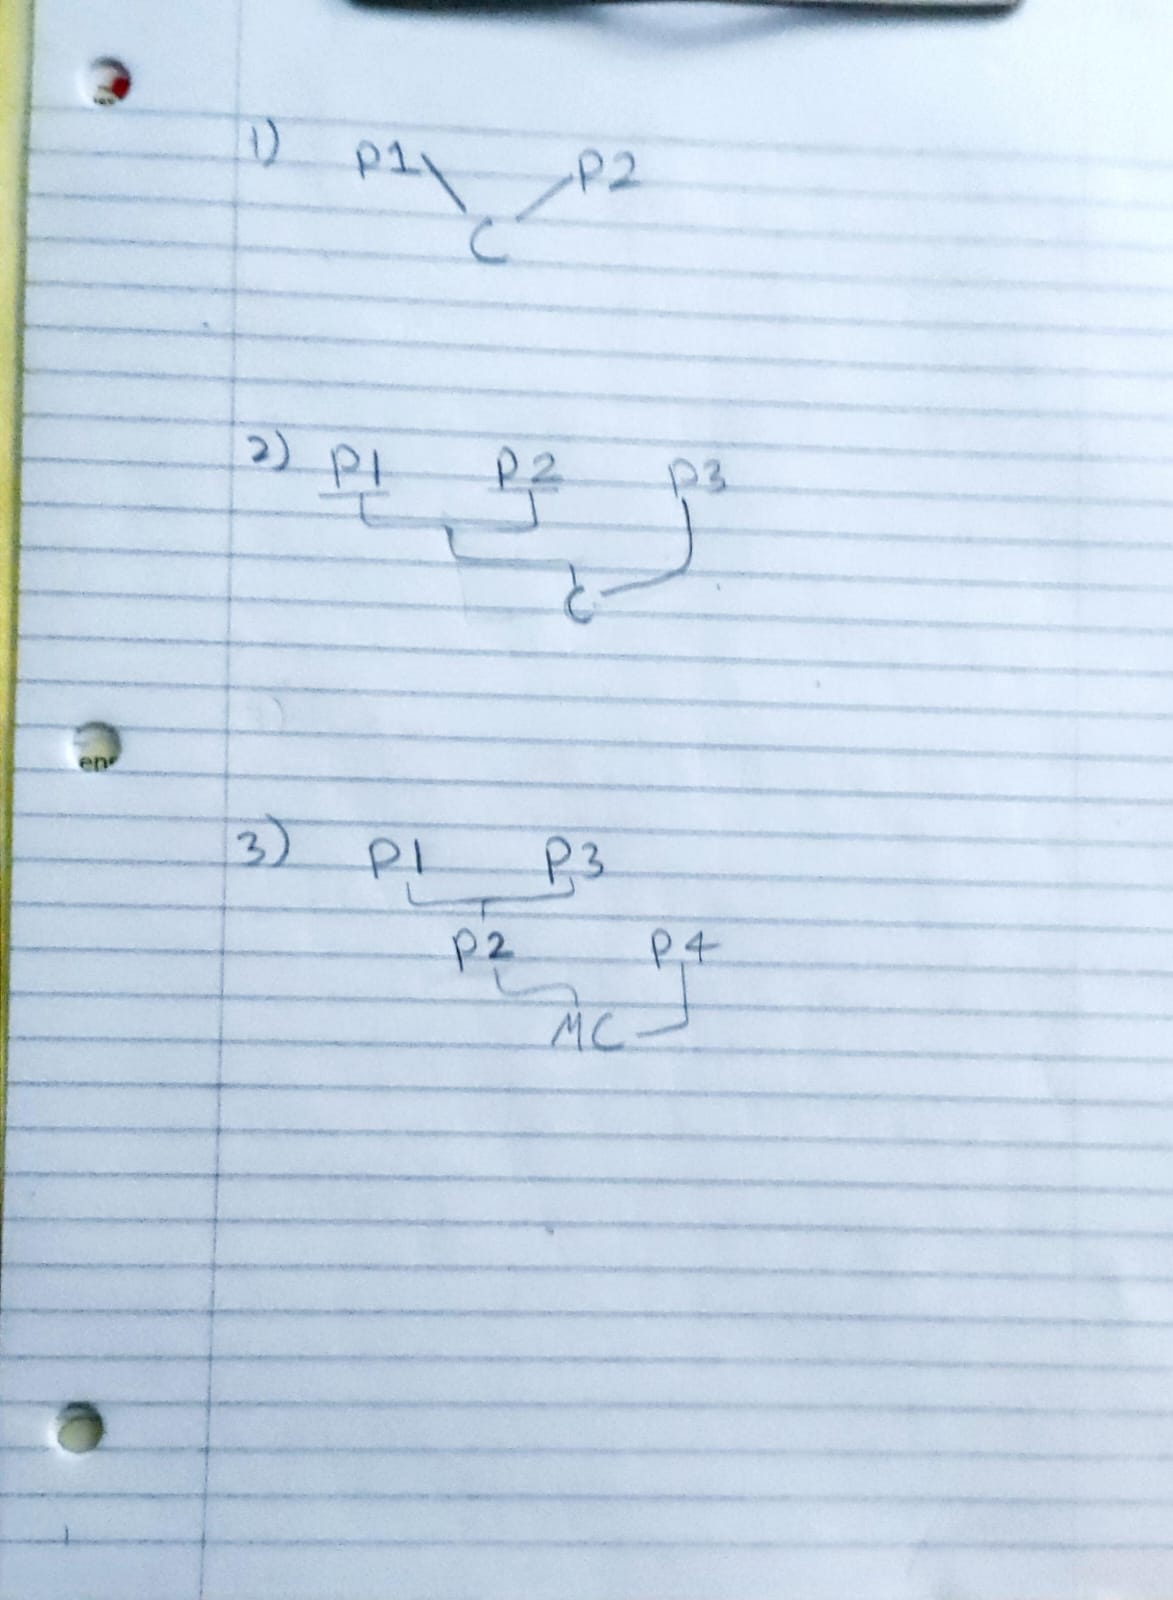 1) P1 P2
C
2) P1 P2 P3
C
3) P1 P3
P2 P4
MC